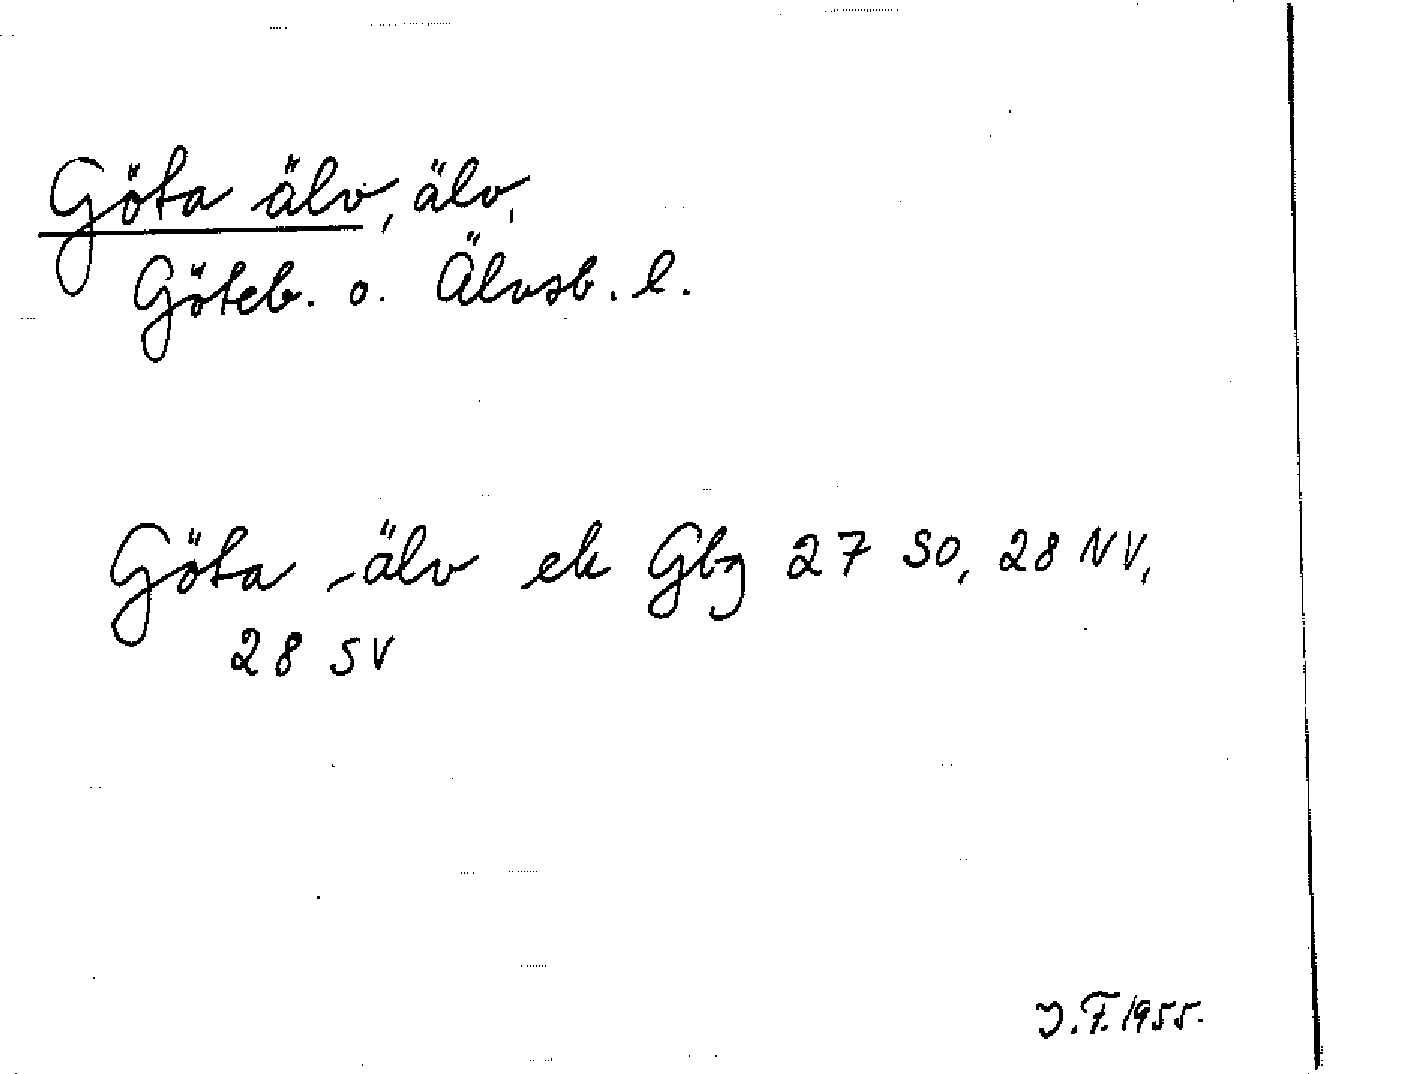 Göta älv, älv,
Göteb. o. Älvsb. l.
Göta -älv ek Gbg 27 SO, 28 NV,
28 SV
J.F. 1955.